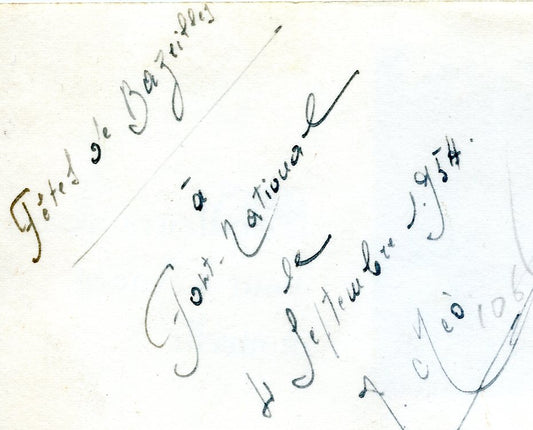 Fêtes de Bazeilles
à
Fort-National
le
Septembre 1954.
106